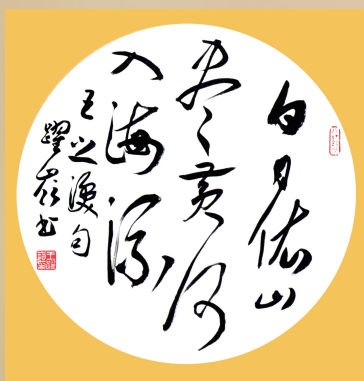 白日依山
尽黄河
入海流
王之涣句
躍书